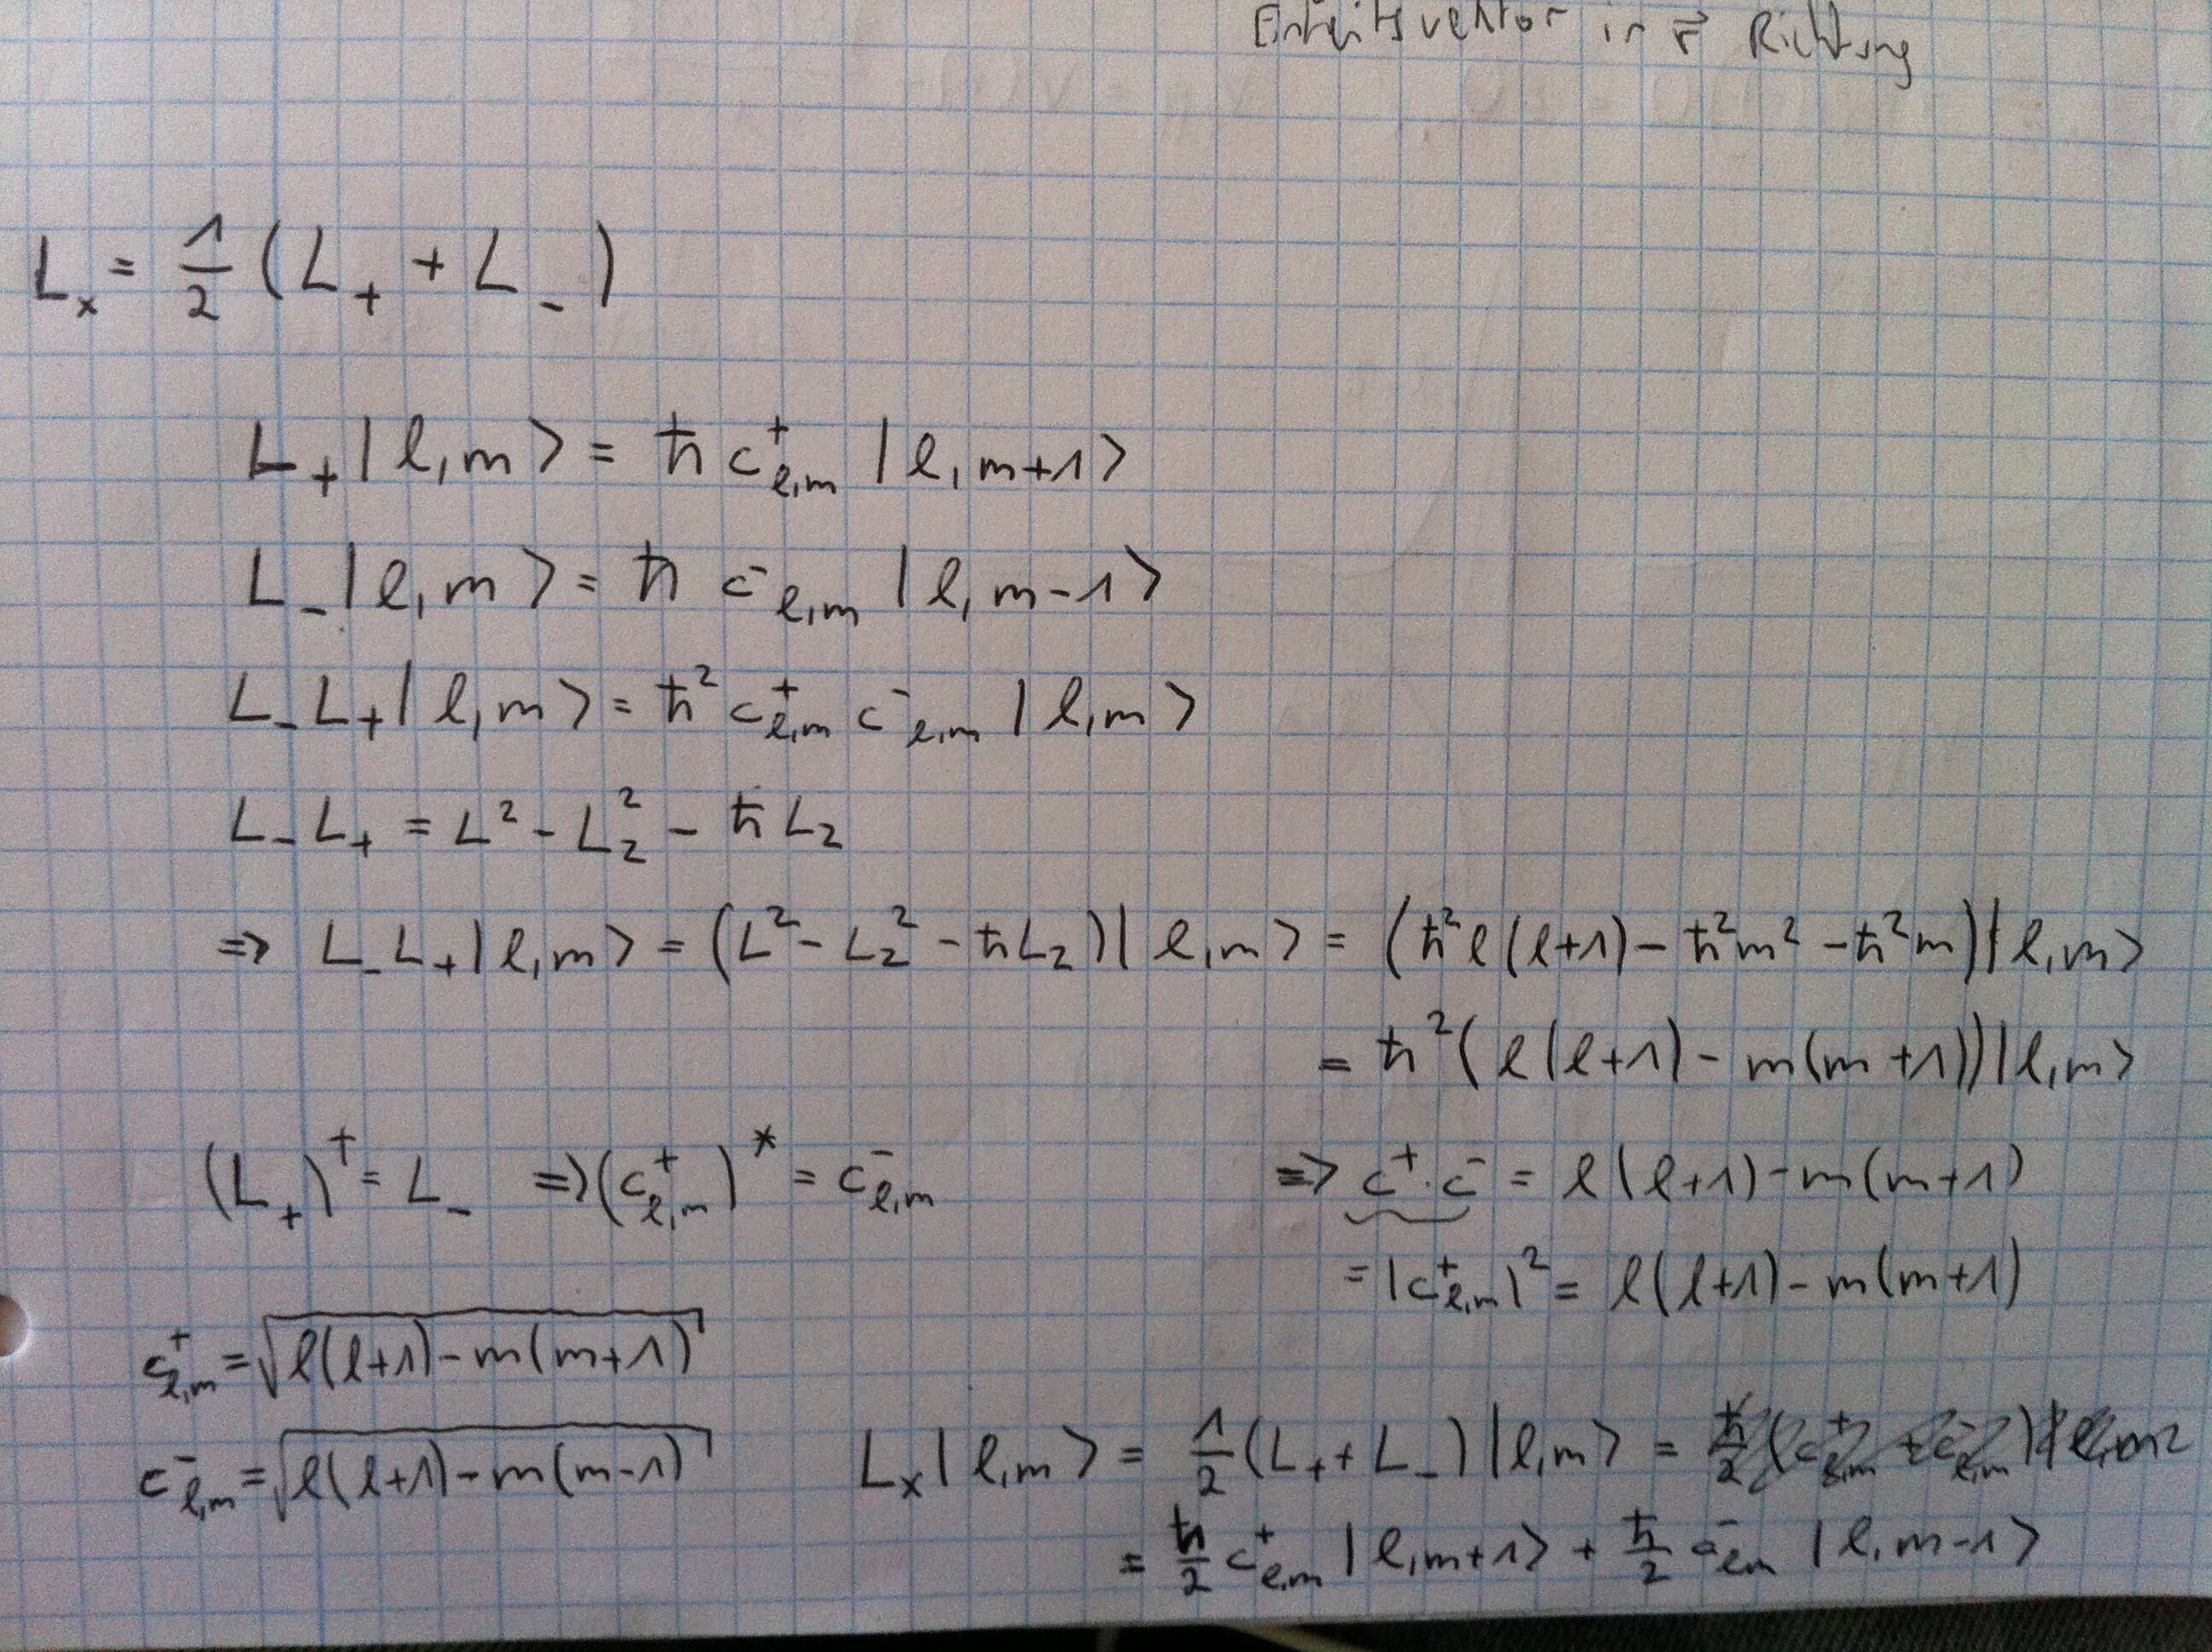 Einheitsvektor in r⃗ Richtung
Lₓ = 1/2 (L₊ + L₋)
L₊|ℓ,m⟩ = ℏ c⁺_{ℓ,m} |ℓ,m+1⟩
L₋|ℓ,m⟩ = ℏ c⁻_{ℓ,m} |ℓ,m-1⟩
L₋L₊|ℓ,m⟩ = ℏ² c⁺_{ℓ,m} c⁻_{ℓ,m} |ℓ,m⟩
L₋L₊ = L² - L_z² - ℏL_z
⇒ L₋L₊|ℓ,m⟩ = (L² - L_z² - ℏL_z)|ℓ,m⟩ = (ℏ²ℓ(ℓ+1) - ℏ²m² - ℏ²m)|ℓ,m⟩
= ℏ²(ℓ(ℓ+1) - m(m+1))|ℓ,m⟩
(L₊)† = L₋ ⇒ (c⁺_{ℓ,m})* = c⁻_{ℓ,m}
⇒ c⁺·c⁻ = ℓ(ℓ+1) - m(m+1)
= |c⁺_{ℓ,m}|² = ℓ(ℓ+1) - m(m+1)
c⁺_{ℓ,m} = √(ℓ(ℓ+1) - m(m+1))
c⁻_{ℓ,m} = √(ℓ(ℓ+1) - m(m-1))
Lₓ|ℓ,m⟩ = 1/2 (L₊ + L₋)|ℓ,m⟩ = ℏ/2 (c⁺_{ℓ,m} + c⁻_{ℓ,m})|ℓ,m⟩
= ℏ/2 c⁺_{ℓ,m} |ℓ,m+1⟩ + ℏ/2 c⁻_{ℓm} |ℓ,m-1⟩